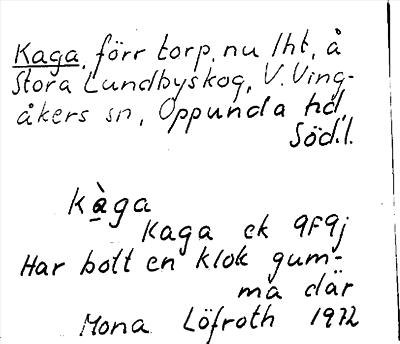 Kaga, förr torp, nu lht, å
Stora Lundbyskog, V. Ving-
åkers sn, Oppunda hd,
Söd.l.
kàga
Kaga ek 9F9j
Har bott en klok gum-
ma där
Mona Löfroth 1972